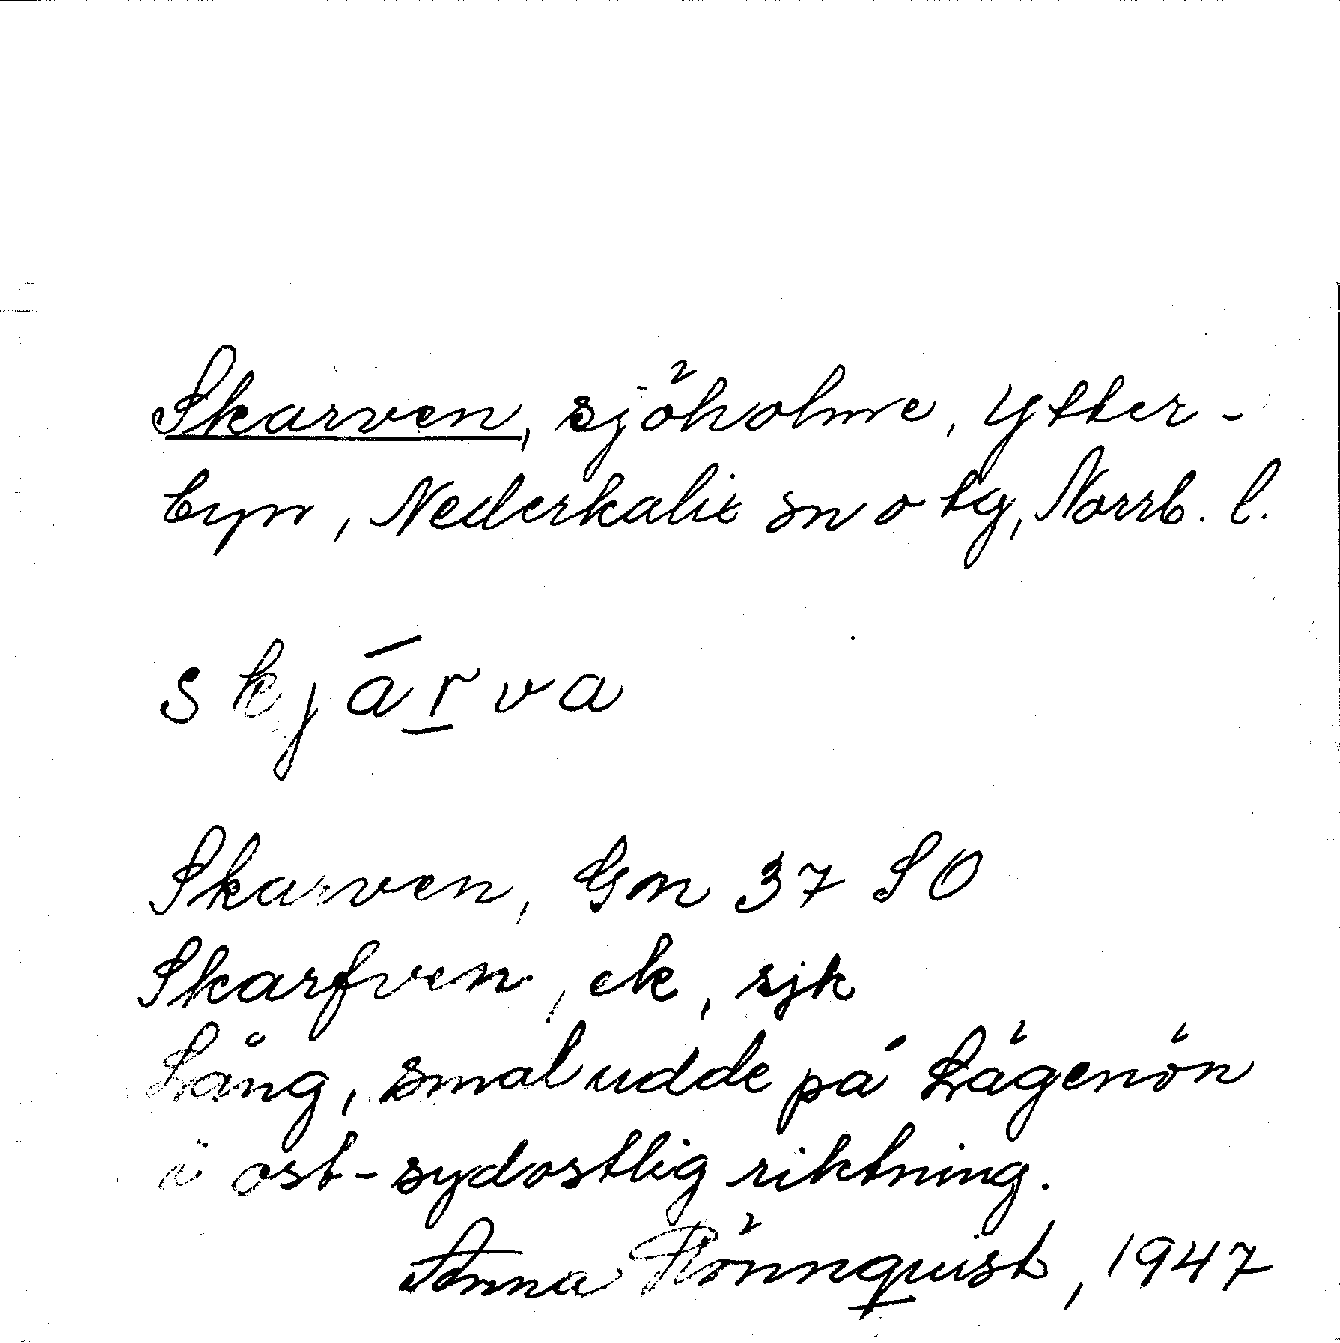 Skarven, sjöholme, Ytter-
byn, Nederkalix sn o tg, Norrb. l.
skjárva
Skarven, Gm 37 SO
Skarfven, ek, sjk
Lång, smal udde på Lågenön
i ost-sydostlig riktning.
Anna Rönnquist, 1947